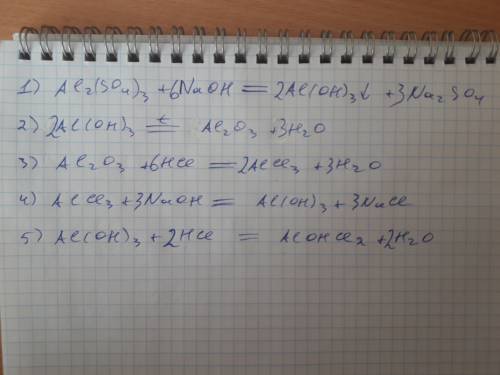 1) Al₂(SO₄)₃ + 6NaOH = 2Al(OH)₃↓ + 3Na₂SO₄
2) 2Al(OH)₃ =ᵗ Al₂O₃ + 3H₂O
3) Al₂O₃ + 6HCl = 2AlCl₃ + 3H₂O
4) AlCl₃ + 3NaOH = Al(OH)₃ + 3NaCl
5) Al(OH)₃ + 2HCl = AlOHCl₂ + 2H₂O